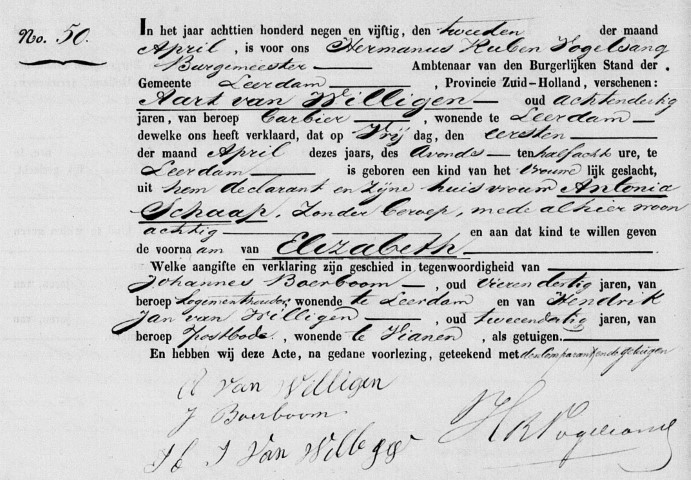 No. 50.
In het jaar achttien honderd negen en vijftig, den tweeden der maand
April, is voor ons Hermanus Ruben Vogelsang
Burgemeester Ambtenaar van den Burgerlijken Stand der
Gemeente Leerdam, Provincie Zuid-Holland, verschenen:
Aart van Willigen oud achtendertig
jaren, van beroep Barbier, wonende te Leerdam
dewelke ons heeft verklaard, dat op Vrij dag, den eersten
der maand April dezes jaars, des Avonds ten half acht ure, te
Leerdam is geboren een kind van het vrouwe lijk geslacht,
uit hem declarant en zijne huisvrouw Antonia
Schaap, zonder beroep, mede alhier woon
achtig en aan dat kind te willen geven
de voorna am van Elizabeth
Welke aangifte en verklaring zijn geschied in tegenwoordigheid van
Johannes Boerboom, oud vierendertig jaren, van
beroep Logementhouder, wonende te Leerdam en van Hendrik
Jan van Willigen, oud tweeendertig jaren, van
beroep Postbode, wonende te Vianen, als getuigen.
En hebben wij deze Acte, na gedane voorlezing, geteekend met den Comparant en de getuigen
A Van Willigen
J Boerboom
H J Van Willegen
H R Vogelsang